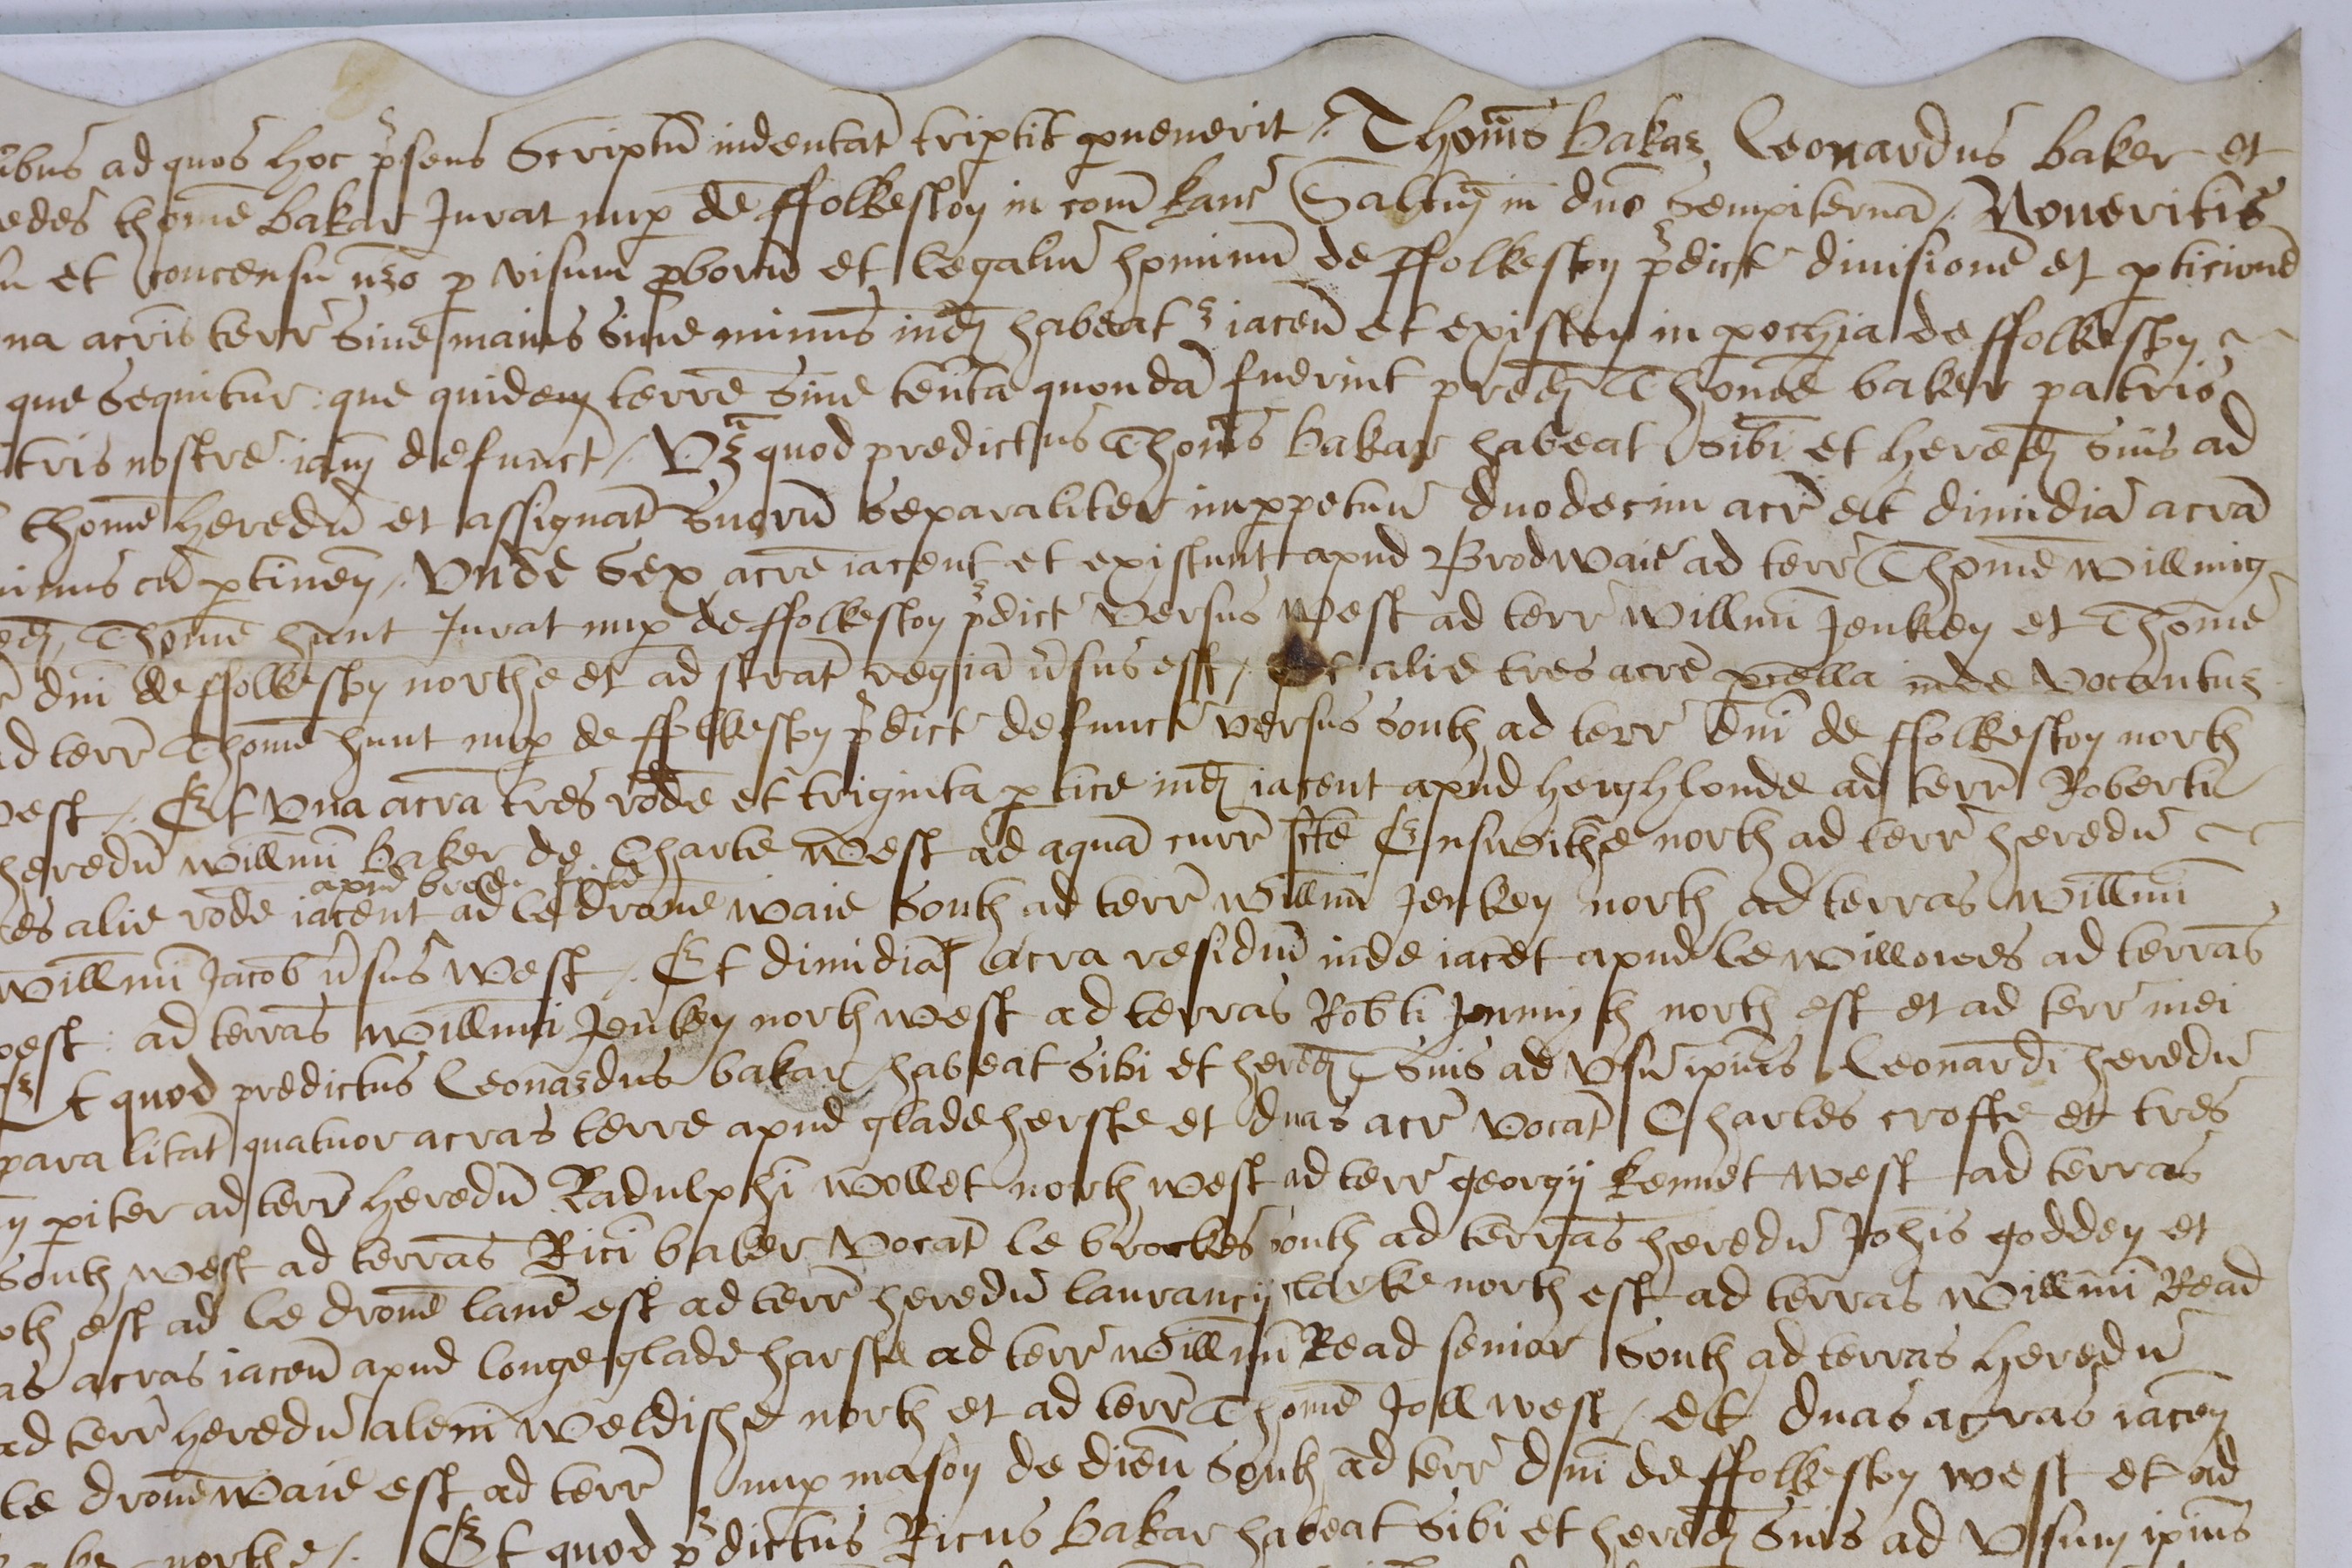 ibus ad quos hoc p̄sens Scriptū indentat tripertit pervenerit / Thom̄s Bakar Leonardus Baker et
edes Thome Bakar Jurat nup de ffolkeston in com̄ Kanc̄ Salt̄m in dn̄o Sempiternā / Noveritis
u et concensu nr̄o p visum proborū et legaliū hominū de ffolkeston p̄dict divisionē et particionē
na acris terr̄ sive maius sive minus inde habeatr iacen̄ et existen in pochia de ffolkeston
que sequitur que quidem terre sive ten̄ta quondā fuerint pred Thome baker patris
tris nostre iam defunct / Vz quod predictus Thom̄s Bakar habeat sibi et hered suis ad
Thome heredū et assignat̄ Suorū separaliter imppetuū duodecim acr̄ et dimidiā acrā
minus cū ptinen / Unde Sex acre iacent et existunt apud Brodwaie ad terr̄ Thome Willmig
ed Thome hunt Jurat nup de ffolkeston p̄dict versus west ad terr̄ Willm̄i Jenken et Thome
dn̄i de ffolkeston northe et ad strat̄ regiā v̄sus est / Et alie tres acre pcella inde vocantur
ad terr̄ Thome hunt nup de ffolkeston p̄dict defunct versus South ad terr̄ dn̄i de ffolkeston north
west / Et Una acra tres rode et triginta ptice inde iacent apud heighlonde ad terr̄ Roberti
heredū Willm̄i Baker de Charte West ad aquā curr̄ sc̄te Enswithe north ad terr̄ heredū
apud brode feild
es alie rode iacent ad le drove waie South ad terr̄ Willm̄i Jenken north ad terras Willm̄i
Willm̄i Jacob v̄sus West / Et dimidia acra residuū inde iacet apud le Willowes ad terras
west : ad terras Willm̄i Jenken north west ad terras Rob̄ti north est et ad terr̄ mei
Et quod predictus Leonardus bakar habeat sibi et hered Suis ad Usū ip̄ius Leonardi heredū
paralitat̄ quatuor acras terre apud gladeherste et duas acr̄ vocat̄ Charles crofte et tres
piter ad terr̄ heredū Radulphi Wollet north west ad terr̄ georgij Kennet west ad terras
South west ad terras Ric̄i baker vocat̄ le brockes south ad terras heredū Joh̄is godden et
oth est ad le drove lane est ad terr̄ heredū laurancij clarke north est ad terras Willm̄i Read
as acras iacen̄ apud longe glade harste ad terr̄ Willm̄i Read senior South ad terras heredū
ad terr̄ heredū aleni Weldishe north et ad terr̄ Thome Joll west / et duas acras iacen
le drove waie est ad terr̄ nup mason de dieū South ad terr̄ dn̄i de ffolkeston west et ad
northe / Et quod p̄dictus Ric̄us Bakar habeat sibi et hered Suis ad Usum ip̄ius